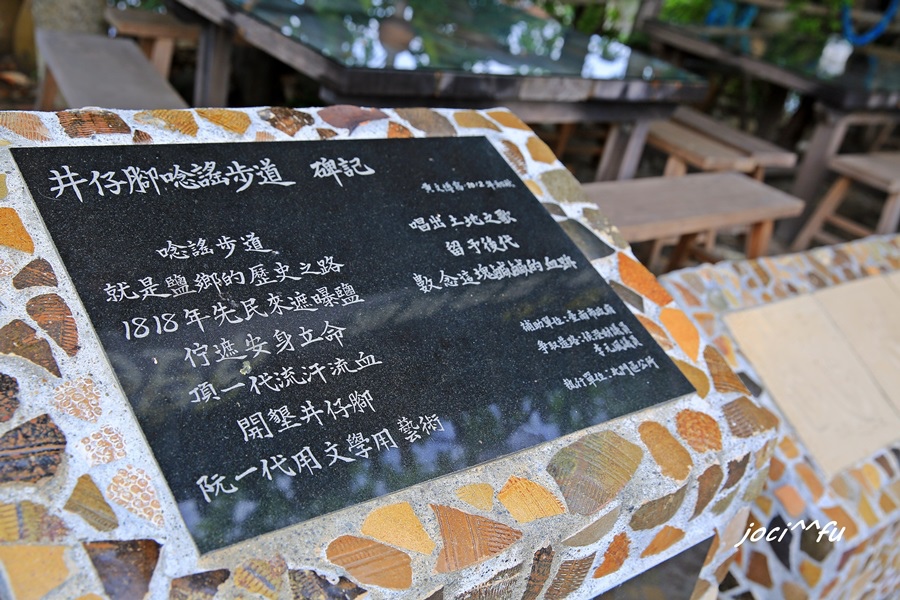 井仔腳唸謠步道 碑記
唸謠步道
就是鹽鄉的歷史之路
1818年先民來遮曝鹽
佇遮安身立命
頂一代流汗流血
開墾井仔腳
阮一代用文學用藝術
唱出土地之歌
留予後代
數念這塊鹹鹹的血跡
補助單位：臺南市政府
執行單位：北門區公所
joci^^fu